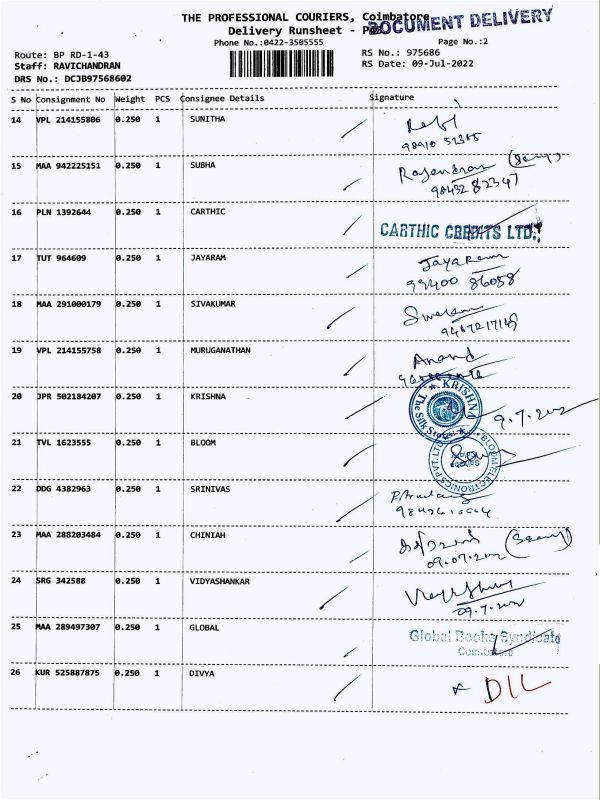 THE PROFESSIONAL COURIERS, Coimbatore
DOCUMENT DELIVERY
Delivery Runsheet -
Phone No.:0422-3505555
Page No.:2
Route: BP RD-1-43
RS No.: 975686
Staff: RAVICHANDRAN
RS Date: 09-Jul-2022
DRS No.: DCJB97568602
S No Consignment No Weight PCS Consignee Details Signature
14 VPL 214155806 0.250 1 SUNITHA
15 MAA 942225151 0.250 1 SUBHA Rajendran
98432 82347
16 PLN 1392644 0.250 1 CARTHIC CARTHIC CREDITS LTD.,
17 TUT 964609 0.250 1 JAYARAM Jayaram
99400 86058
18 MAA 291000179 0.250 1 SIVAKUMAR
19 VPL 214155758 0.250 1 MURUGANATHAN Anand
20 JPR 502184207 0.250 1 KRISHNA KRISHNA
The Silk Store
9.7.202
21 TVL 1623555 0.250 1 BLOOM BLOOM ELECTRONICS PVT. LTD
22 DDG 4382963 0.250 1 SRINIVAS
23 MAA 288203484 0.250 1 CHINIAH
09.07.202
24 SRG 342588 0.250 1 VIDYASHANKAR
09.7.202
25 MAA 289497307 0.250 1 GLOBAL Global Books Syndicate
Coimbatore
26 KUR 525887875 0.250 1 DIVYA DIL